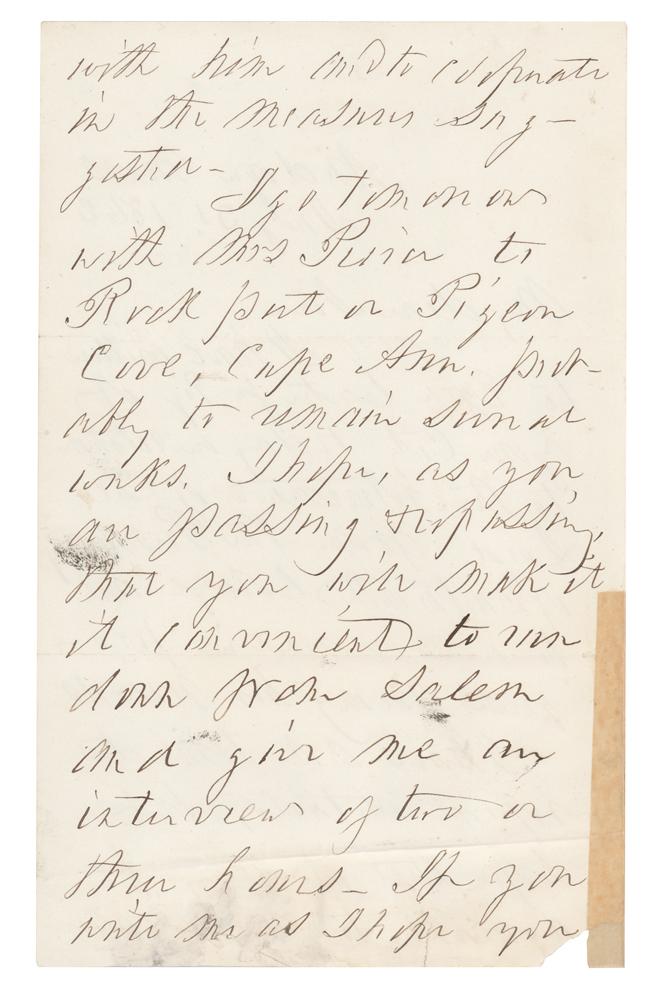 with him and to cooperate
in the measures sug-
gested-
I go tomorrow
with Mrs Pierce to
Rock port or Pigeon
Cove, Cape Ann. prob-
ably to remain several
weeks. I hope, as you
are passing & repassing,
that you will make it
it convenient to run
down from Salem
and give me an
interview of two or
three hours - If you
write me as I hope you